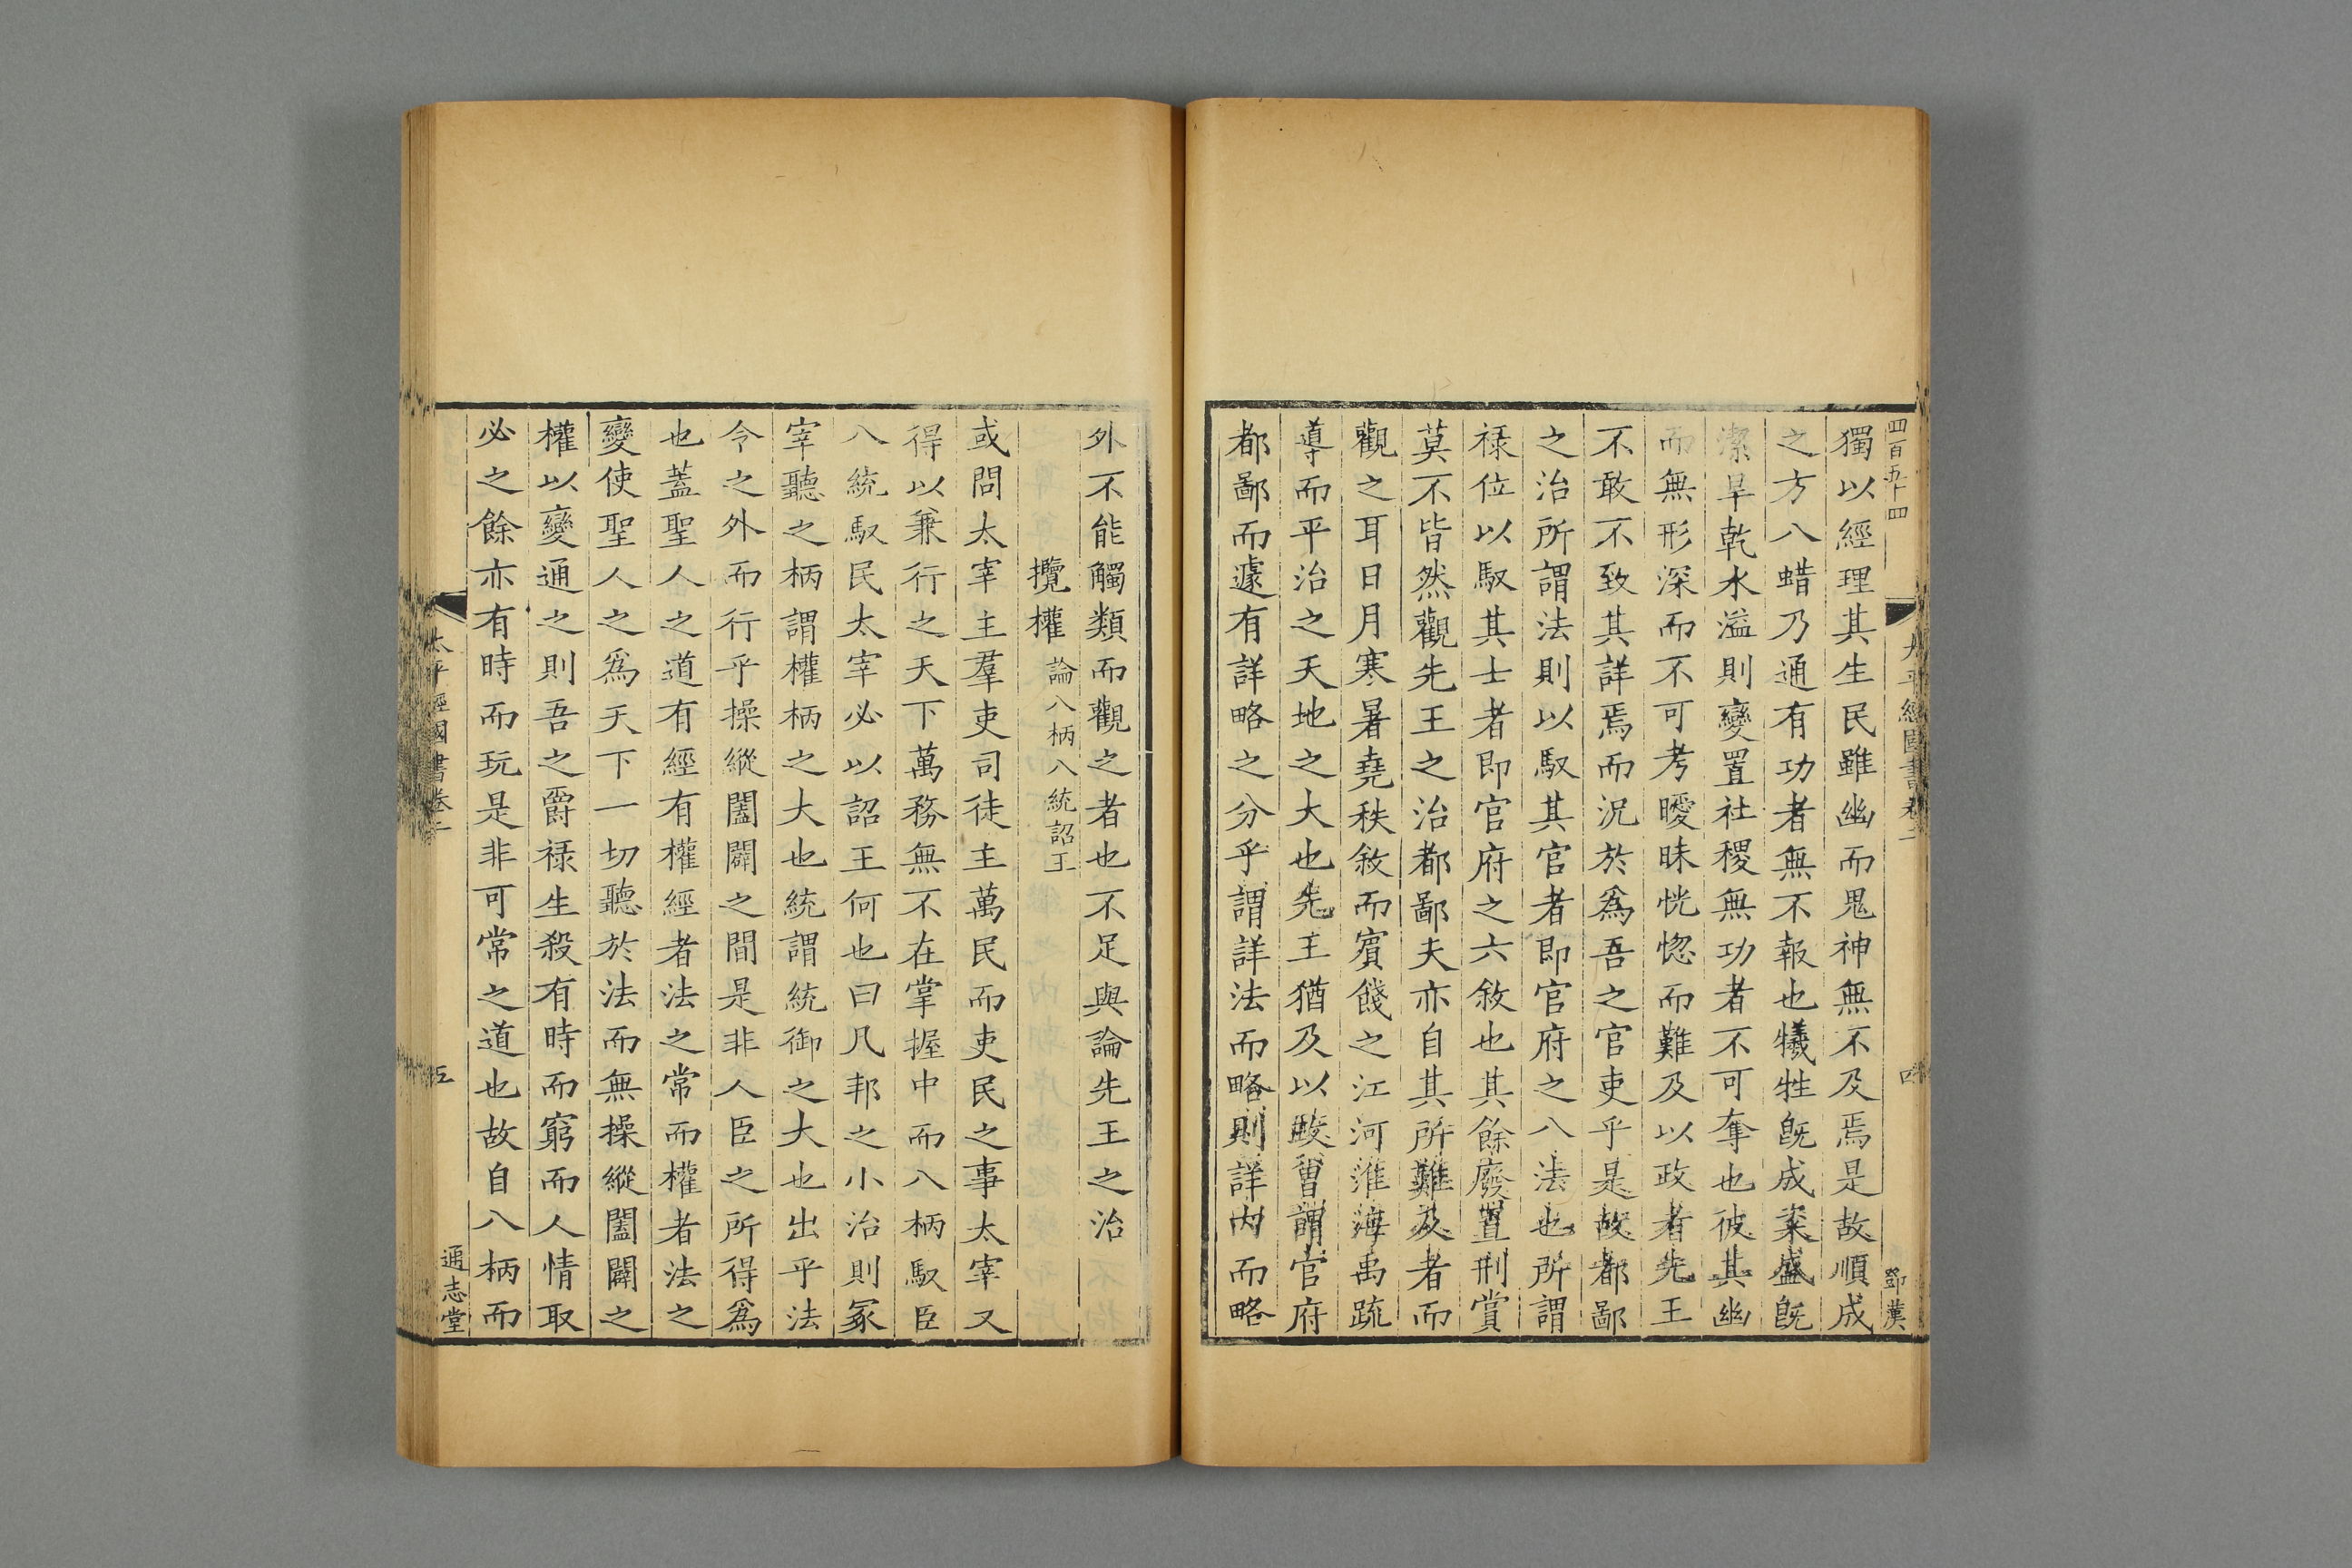 四百五十四
太平經國書卷二
四
鄧漢
獨以經理其生民雖幽而鬼神無不及焉是故順成
之方八蜡乃通有功者無不報也犧牲旣成粢盛旣
潔旱乾水溢則變置社稷無功者不可奪也彼其幽
而無形深而不可考曖昧恍惚而難及以政者先王
不敢不致其詳焉而況於爲吾之官吏乎是故都鄙
之治所謂法則以馭其官者即官府之八法也所謂
祿位以馭其士者即官府之六敘也其餘廢置刑賞
莫不皆然觀先王之治都鄙夫亦自其所難及者而
觀之耳日月寒暑堯秩敘而賓餞之江河淮海禹疏
導而平治之天地之大也先王猶及以政曾謂官府
都鄙而遽有詳略之分乎謂詳法而略則詳內而略
外不能觸類而觀之者也不足與論先王之治
攬權 論八柄八統詔王
或問太宰主羣吏司徒主萬民而吏民之事太宰又
得以兼行之天下萬務無不在掌握中而八柄馭臣
八統馭民太宰必以詔王何也曰凡邦之小治則冢
宰聽之柄謂權柄之大也統謂統御之大也出乎法
令之外而行乎操縱闔闢之間是非人臣之所得爲
也蓋聖人之道有經有權經者法之常而權者法之
變使聖人之爲天下一切聽於法而無操縱闔闢之
權以變通之則吾之爵祿生殺有時而窮而人情取
必之餘亦有時而玩是非可常之道也故自八柄而
太平經國書卷二
五
通志堂